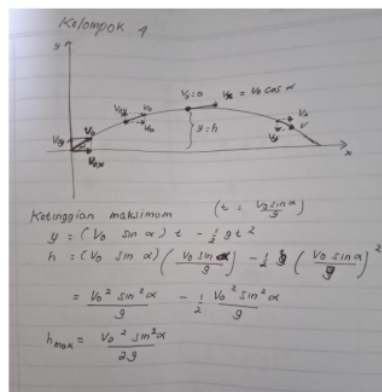 Kelompok 4
y
Vy=0 Vx = Vo cos α
Voy Vo
Vox
Vx
Vo
Voy
y=h
Vy
V
Vox
x
Ketinggian maksimum (t = Vo sin α / g)
y = (Vo sin α) t - 1/2 g t²
h = (Vo sin α) (Vo sin α / g) - 1/2 g (Vo sin α / g)²
= Vo² sin² α / g - 1/2 Vo² sin² α / g
hmak = Vo² sin² α / 2g